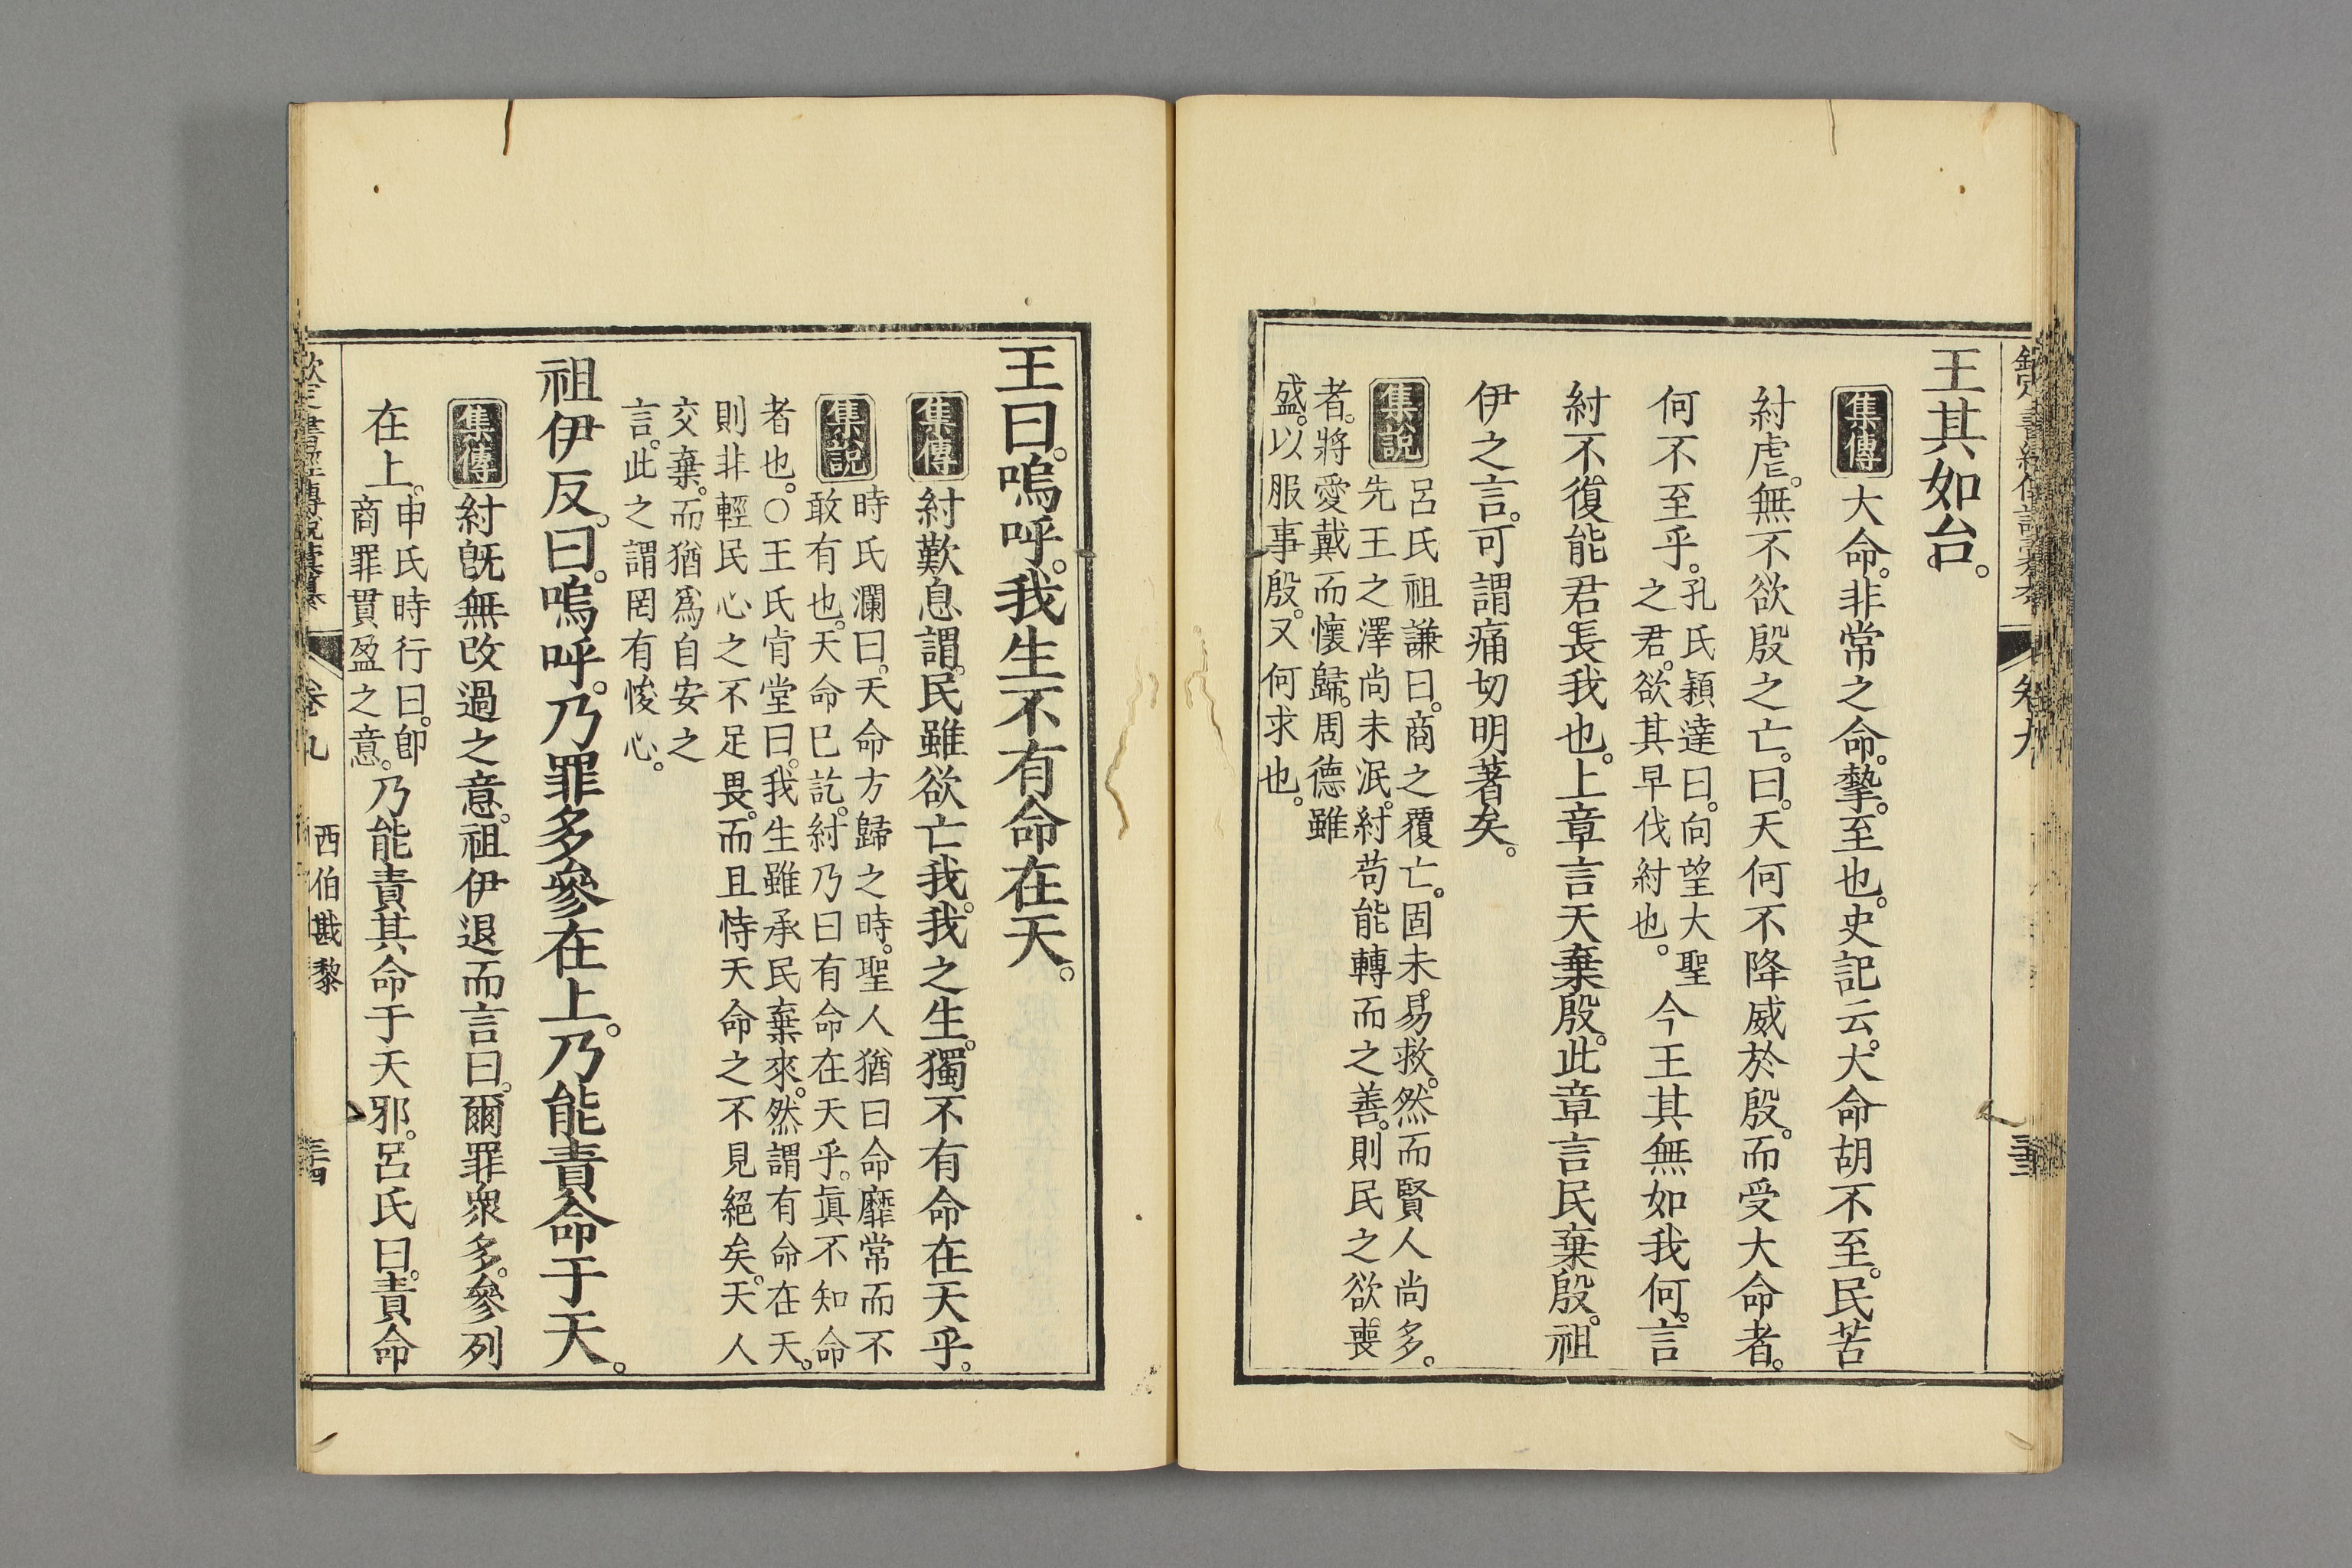 王其如台。
集傳 大命。非常之命。摯。至也。史記云。大命胡不至。民苦
紂虐。無不欲殷之亡。曰。天何不降威於殷。而受大命者。
何不至乎。孔氏穎達曰。向望大聖之君。欲其早伐紂也。今王其無如我何。言
紂不復能君長我也。上章言天棄殷。此章言民棄殷。祖
伊之言。可謂痛切明著矣。
集說 呂氏祖謙曰。商之覆亡。固未易救。然而賢人尚多。
先王之澤尚未泯。紂苟能轉而之善。則民之欲喪
者。將愛戴而懷歸。周德雖
盛。以服事殷。又何求也。
王曰。嗚呼。我生不有命在天。
集傳 紂歎息謂。民雖欲亡我。我之生。獨不有命在天乎。
集說 時氏瀾曰。天命方歸之時。聖人猶曰命靡常而不
敢有也。天命已訖。紂乃曰有命在天乎。眞不知命
者也。○王氏肯堂曰。我生雖承民棄來。然謂有命在天。
則非輕民心之不足畏。而且恃天命之不見絕矣。天人
交棄。而猶爲自安之
言。此之謂罔有悛心。
祖伊反。曰。嗚呼。乃罪多參在上。乃能責命于天。
集傳 紂旣無改過之意。祖伊退而言曰。爾罪衆多。參列
在上。申氏時行曰。卽商罪貫盈之意。乃能責其命于天邪。呂氏曰。責命
卷九
西伯戡黎